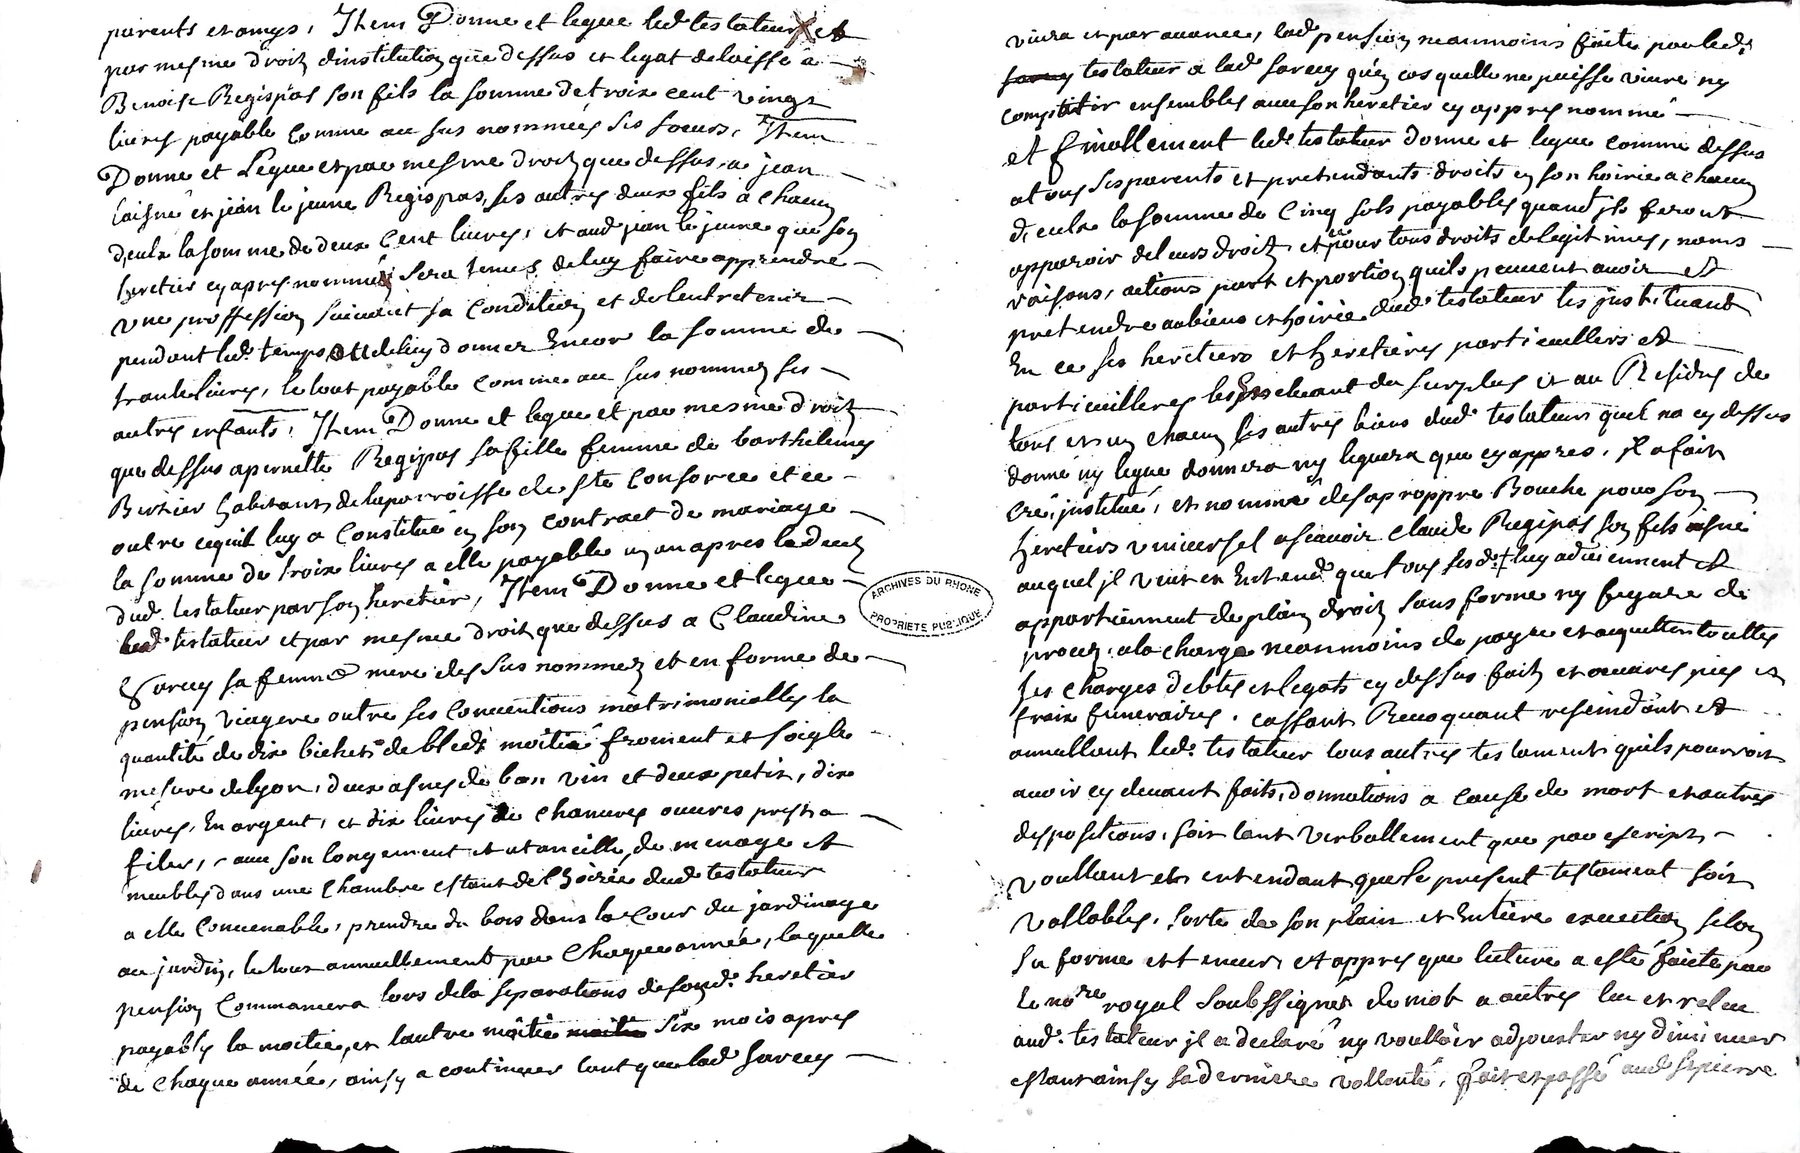 parents et amys, Item Donne et legue led. testateur et
par mesme droit dinstitution que dessus et legat delaisse a
Benoist Regipas son fils la somme de troix cent vingt
livres payable comme au sus nommées ses soeurs, Item
Donne et Legue et par mesme droit que dessus a jean
laisné et jean le jeune Regispas, ses autres deux fils a chacun
d'eulx la somme de deux cent livres, et aud jean le jeune que son
heretier cy apres nommé sera tenus de luy faire apprendre
une proffession suivant sa condition et de lentretenir
pendant led. temps ou de luy donner encor la somme de
trante livres, le tout payable comme au sus nommez ses
autres enfants, Item Donne et legue et par mesme droit
que dessus a pernette Regipas sa fille femme de barthelemy
Birtier habitant de la parroisse de Ste Consorce et ce
outre ce quil luy a Constitué en son contract de mariage
la somme de troix livres a elle payable un an apres le deces
dud. testateur par son heretier, Item Donne et legue
led. testateur et par mesme droit que dessus a Claudine
Sarcey sa femme mere des sus nommez et en forme de
pension viagere outre ses conventions matrimonielles la
quantité de dix bichets de bleds moitié froment et soigle
mesure de lyon, deux asnes de bon vin et deux petit, dix
livres, En argent, et dix livres de chanvres ouvres prest a
filer, avec son longement et utancille, de menage et
meubles dans une chambre estant de lhoirie dud testateur
a elle convenable, prendre du bois dans la cour du jardinage
au jardin, le tout annuellement par chaque année, laquelle
pension commancera lors de la separations de sond. heretier
payable la moitie, et lautre moitié moitie six mois apres
de chaque année, ainsy a continuer tant que lad Sarcey
vivra et par avance, lad pension neanmoins faite par led.
sarcey testateur a lad sarcey qu'en cas quelle ne puisse vivre ny
compatir ensembles avec son heretier cy appres nommé
et finallement led. testateur donne et legue comme dessus
a tous ses parents et pretendants droits en son hoirie a chacun
d'eulx la somme de Cinq sols payables quand jls feront
apparoir de leurs droit et pour tous droits de legitimes, noms
raisons, actions part et portion quils peuvent avoir et
pretendre au biens et hoirie dud testateur les jnstituant
En ce ses heretiers et heretieres particuilliers et
particuilleres les excluant du surplus et au Residus de
tous et un chacun ses autres biens dud. testateur quil na cy dessus
donné ny legue donnera ny leguera que cy appres, jl a fait
créé jnstitué, et nommé de sa proppre Bouche pour son
heretiers universel ascavoir Claude Regipas son fils aisné
auquel jl veut et Entend que tous sesd. luy adviennent et
appartiennent de plain droit sans forme ny figure de
procez, a la charge neanmoins de payer et acquitter toutes
ses charges debtes et legats cy dessus fait et oeuvres pies et
fraix funeraires. cassant Revoquant resindant et
annullant led. testateur tous autres testament quils pourroit
avoir cy devant faits, donnations a cause de mort et autres
dispositions, soit tant verballement que par escript
voullant et entendant que le present testament soit
vallables, sorte de son plain et Entiere execution selon
sa forme et teneur, et appres que lecture a esté faicte par
le nore royal soubssignes de mot a autres leu et releu
aud. testateur jl a declaré ny voulloir adjouster ny diminuer
estant ainsy sa derniere vollonté, fait et passé aud St pierre
ARCHIVES DU RHONE
PROPRIETE PUBLIQUE